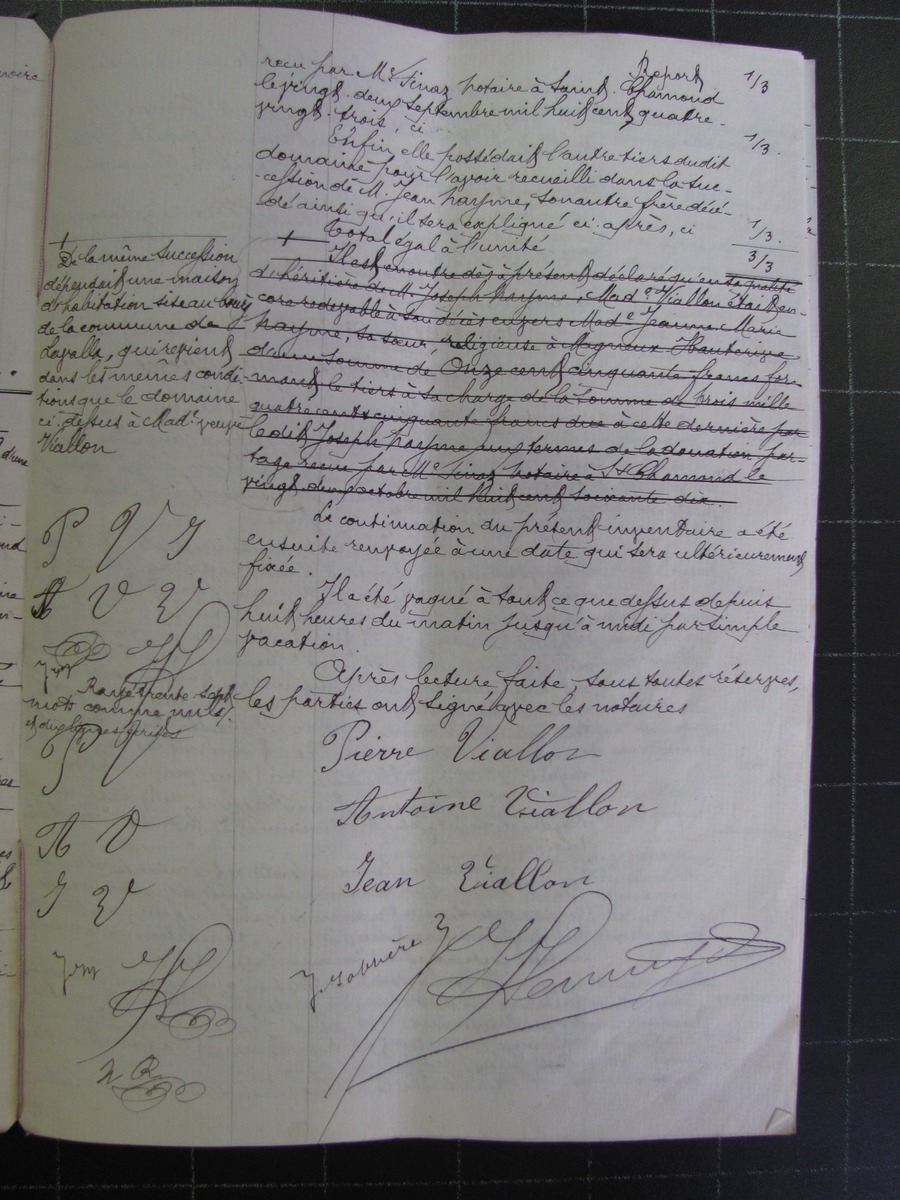 Report 1/3
reçu par Me Finaz notaire à Saint-Chamond
le vingt-deux septembre mil huit cent quatre-
vingt-trois, ci 1/3.
Enfin, elle possédait l'autre tiers dudit
domaine pour l'avoir recueilli dans la suc-
-cession de M. Jean hayme, son autre frère décé-
dé ainsi qu'il sera expliqué ci-après, ci 1/3.
Total égal à l'unité 3/3
Il est en outre dès à présent déclaré qu'en sa qualité
d'héritière de M. Joseph hayme, Made Viallon était en-
core redevable à son décès envers Made Jeanne Marie
hayme, sa sœur, religieuse à Magneux Hauterive
d'une somme de Onze cent cinquante francs for-
mant le tiers à sa charge de la somme de trois mille
quatre cent cinquante francs due à cette dernière par
ledit Joseph hayme aux termes de la donation par-
tage reçue par Me Finaz notaire à St Chamond le
vingt deux octobre mil huit cent soixante dix.
La continuation du présent inventaire a été
ensuite renvoyée à une date qui sera ultérieurement
fixée.
Il a été vaqué à tout ce que dessus depuis
huit heures du matin jusqu'à midi par simple
vacation.
Après lecture faite, sous toutes réserves,
les parties ont signé avec les notaires
Pierre Viallon
Antoine Viallon
Jean Viallon
De la même succession
dépendait une maison
d'habitation sise au bourg
de la commune de
Lavalla, qui revient
dans les mêmes condi-
tions que le domaine
ci-dessus à Made veuve
Viallon
P V J
A V V
Jm
Rayé trente-sept
mots comme nuls
P V
A V
J V
Jm